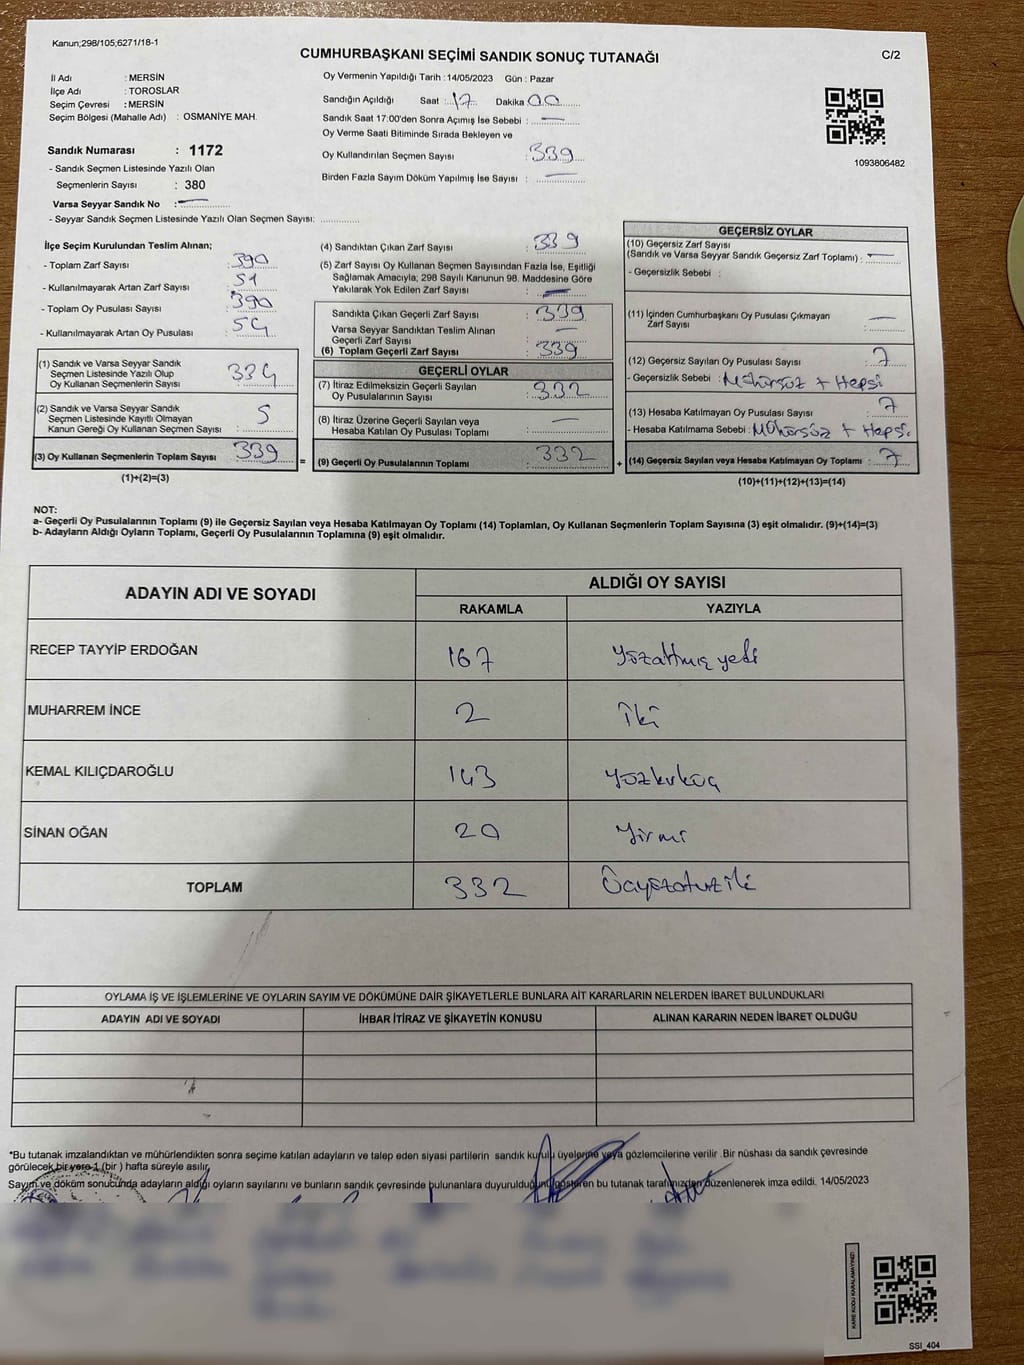 Kanun;298/105;6271/18-1
CUMHURBAŞKANI SEÇİMİ SANDIK SONUÇ TUTANAĞI
C/2
İl Adı : MERSİN
İlçe Adı : TOROSLAR
Seçim Çevresi : MERSİN
Seçim Bölgesi (Mahalle Adı) : OSMANİYE MAH.
Sandık Numarası : 1172
- Sandık Seçmen Listesinde Yazılı Olan
Seçmenlerin Sayısı : 380
Varsa Seyyar Sandık No :
- Seyyar Sandık Seçmen Listesinde Yazılı Olan Seçmen Sayısı:
Oy Vermenin Yapıldığı Tarih : 14/05/2023 Gün : Pazar
Sandığın Açıldığı Saat : 17 Dakika 00
Sandık Saat 17:00'den Sonra Açımış İse Sebebi : —
Oy Verme Saati Bitiminde Sırada Bekleyen ve
Oy Kullandırılan Seçmen Sayısı : 339
Birden Fazla Sayım Döküm Yapılmış İse Sayısı : —
1093806482
İlçe Seçim Kurulundan Teslim Alınan;
- Toplam Zarf Sayısı : 390
- Kullanılmayarak Artan Zarf Sayısı : 51
- Toplam Oy Pusulası Sayısı : 390
- Kullanılmayarak Artan Oy Pusulası :
(1) Sandık ve Varsa Seyyar Sandık
Seçmen Listesinde Yazılı Olup
Oy Kullanan Seçmenlerin Sayısı : 334
(2) Sandık ve Varsa Seyyar Sandık
Seçmen Listesinde Kayıtlı Olmayan
Kanun Gereği Oy Kullanan Seçmen Sayısı : 5
(3) Oy Kullanan Seçmenlerin Toplam Sayısı : 339
(1)+(2)=(3)
=
(4) Sandıktan Çıkan Zarf Sayısı : 339
(5) Zarf Sayısı Oy Kullanan Seçmen Sayısından Fazla İse, Eşitliği
Sağlamak Amacıyla; 298 Sayılı Kanunun 98. Maddesine Göre
Yakılarak Yok Edilen Zarf Sayısı : —
Sandıkta Çıkan Geçerli Zarf Sayısı : 339
Varsa Seyyar Sandıktan Teslim Alınan
Geçerli Zarf Sayısı : —
(6) Toplam Geçerli Zarf Sayısı : 339
GEÇERLİ OYLAR
(7) İtiraz Edilmeksizin Geçerli Sayılan
Oy Pusulalarının Sayısı : 332
(8) İtiraz Üzerine Geçerli Sayılan veya
Hesaba Katılan Oy Pusulası Toplamı : —
(9) Geçerli Oy Pusulalarının Toplamı : 332
+
GEÇERSİZ OYLAR
(10) Geçersiz Zarf Sayısı
(Sandık ve Varsa Seyyar Sandık Geçersiz Zarf Toplamı) : —
- Geçersizlik Sebebi :
(11) İçinden Cumhurbaşkanı Oy Pusulası Çıkmayan
Zarf Sayısı : —
(12) Geçersiz Sayılan Oy Pusulası Sayısı : 7
- Geçersizlik Sebebi : Mühürsüz + Hepsi
(13) Hesaba Katılmayan Oy Pusulası Sayısı : 7
- Hesaba Katılmama Sebebi : Mühürsüz + Hepsi.
(14) Geçersiz Sayılan veya Hesaba Katılmayan Oy Toplamı : 7
(10)+(11)+(12)+(13)=(14)
NOT:
a- Geçerli Oy Pusulalarının Toplamı (9) ile Geçersiz Sayılan veya Hesaba Katılmayan Oy Toplamı (14) Toplamları, Oy Kullanan Seçmenlerin Toplam Sayısına (3) eşit olmalıdır. (9)+(14)=(3)
b- Adayların Aldığı Oyların Toplamı, Geçerli Oy Pusulalarının Toplamına (9) eşit olmalıdır.
ADAYIN ADI VE SOYADI
ALDIĞI OY SAYISI
RAKAMLA YAZIYLA
RECEP TAYYİP ERDOĞAN 167 Yüzaltmış yedi
MUHARREM İNCE 2 İki
KEMAL KILIÇDAROĞLU 143 Yüzkırküç
SİNAN OĞAN 20 Yirmi
TOPLAM 332 Üçyüzotuziki
OYLAMA İŞ VE İŞLEMLERİNE VE OYLARIN SAYIM VE DÖKÜMÜNE DAİR ŞİKAYETLERLE BUNLARA AİT KARARLARIN NELERDEN İBARET BULUNDUKLARI
ADAYIN ADI VE SOYADI İHBAR İTİRAZ VE ŞİKAYETİN KONUSU ALINAN KARARIN NEDEN İBARET OLDUĞU
*Bu tutanak imzalandıktan ve mühürlendikten sonra seçime katılan adayların ve talep eden siyasi partilerin sandık kurulu üyelerine veya gözlemcilerine verilir .Bir nüshası da sandık çevresinde
görülecek bir yere 1 (bir ) hafta süreyle asılır.
Sayım ve döküm sonucunda adayların aldığı oyların sayılarını ve bunların sandık çevresinde bulunanlara duyurulduğunu gösteren bu tutanak tarafımızdan düzenlenerek imza edildi. 14/05/2023
KARE KODU KARALAMAYINIZ!
SSI_404